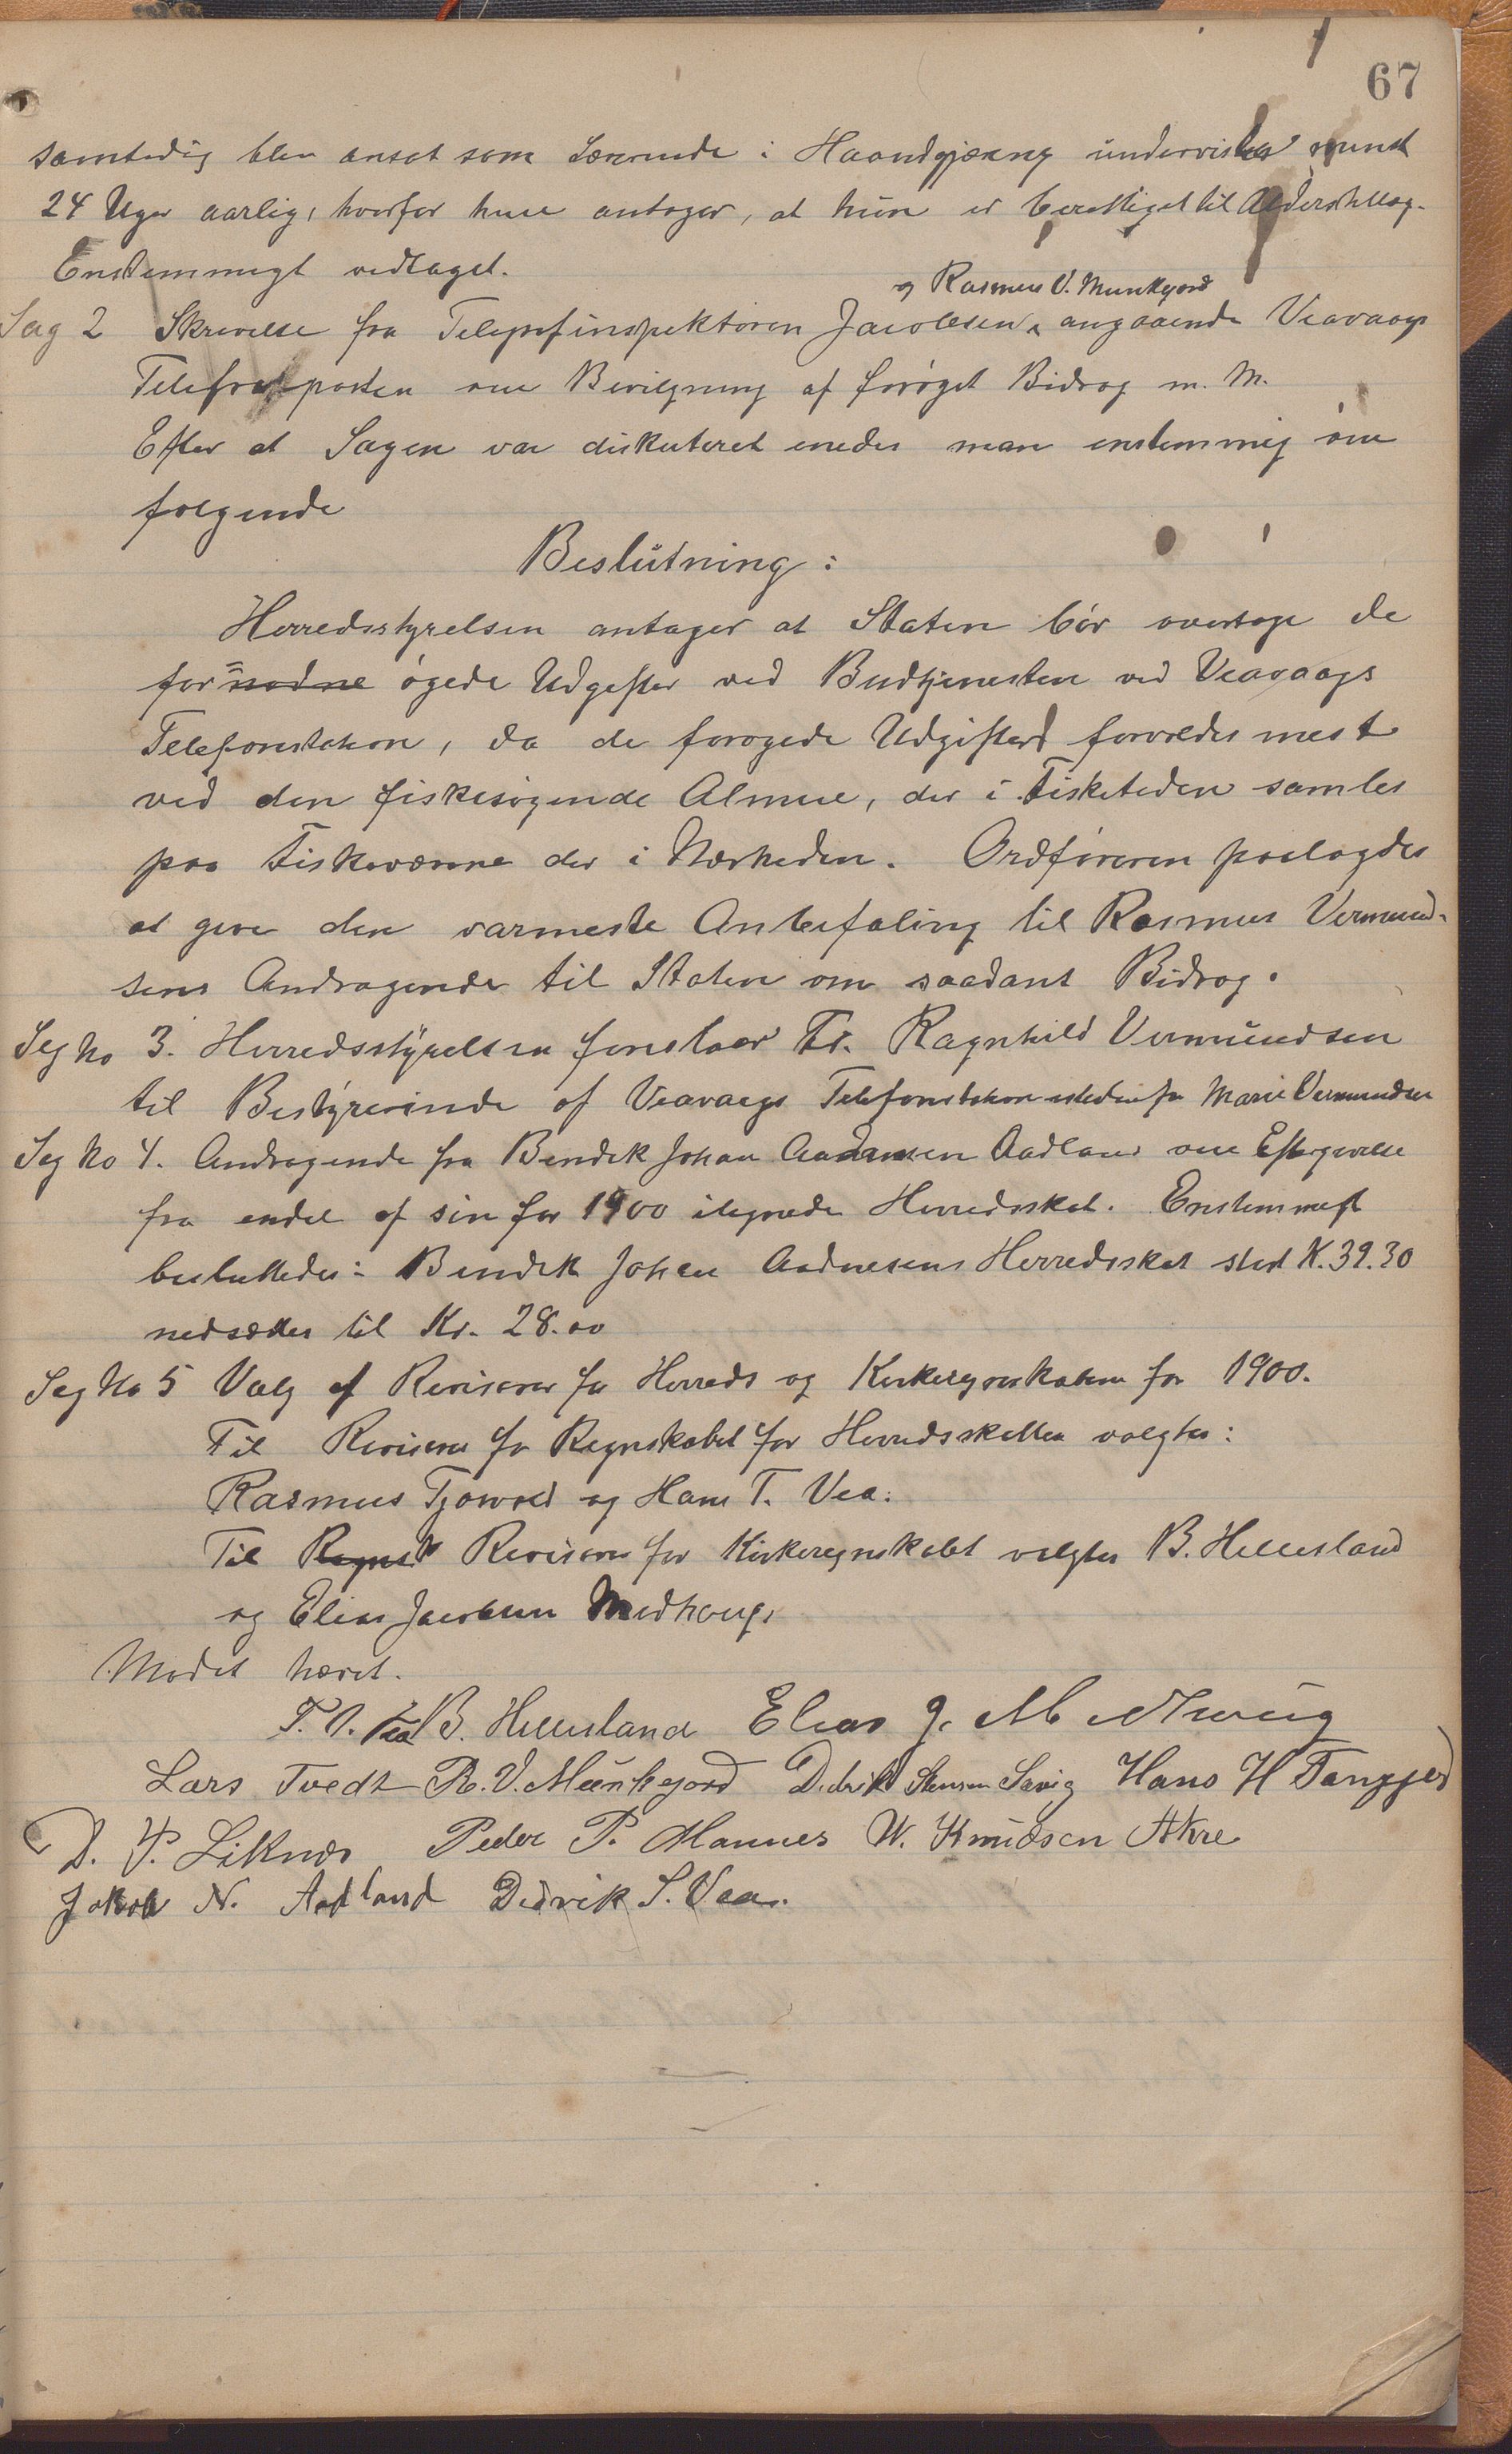 67
samtidig blev ansat som Lærerinde i Haandgjærning undervister mindst
24 Uger aarlig, hvorfor hun antager, at hun er berettiget til Alderstillæg.
Enstemmigt vedtaget.
og Rasmus V. Munkejord
Sag 2 Skrivelse fra Telegrafinspektøren Jacobsen angaaende Veavaags
Telefonposten om Bevilgning af forøget Bidrag m. M.
Efter at Sagen var diskuteret enedes man enstemmig om
følgende
Beslutning:
Herredsstyrelsen antager at Staten bør overtage de
for nødne øgede Udgifter ved Budtjenesten ved Veavaags
Telefonstation, da de forøgede Udgifter forvoldes mest
ved den fiskesøgende Almue, der i Fisketiden samles
paa Fiskeværene der i Nærheden. Ordføreren paalagdes
at give den varmeste Anbefaling til Rasmus Vermund-
sens Andragende til Staten om saadant Bidrag.
Sag No 3. Herredsstyrelsen foreslaar Fr. Ragnhild Vermundsen
til Bestyrerinde af Veavaags Telefonstation istedenfor Marie Vermundsen
Sag No 4. Andragende fra Bendik Johan Aadnesen Aadland om Eftergivelse
fra endel af sin for 1900 ilignede Herredsskat. Enstemmigt
besluttedes: Bendik Johan Aadnesens Herredsskat stor K. 39.30
nedsættes til Kr. 28.00
Sag No 5 Valg af Revisorer for Herreds og Kirkeregnskaberne for 1900.
Til Revisorer for Regnskabet for Herredsskatten valgtes:
Rasmus Tjøsvold og Hans T. Vea.
Til Regnsk Revisorer for Kirkeregnskabet valgtes B. Hellesland
og Elias Jacobsen Medhaug.
Mødet hævet.
T. V. Vea B. Hellesland Elias J. Medhaug
Lars Tvedt R. V. Munkejord Didrik Stensen Sævig Hans H Tangjerd
D. P. Liknes Peder P. Mannes W. Knudsen Akre
Jakob N. Aadland Didrik S. Vea.